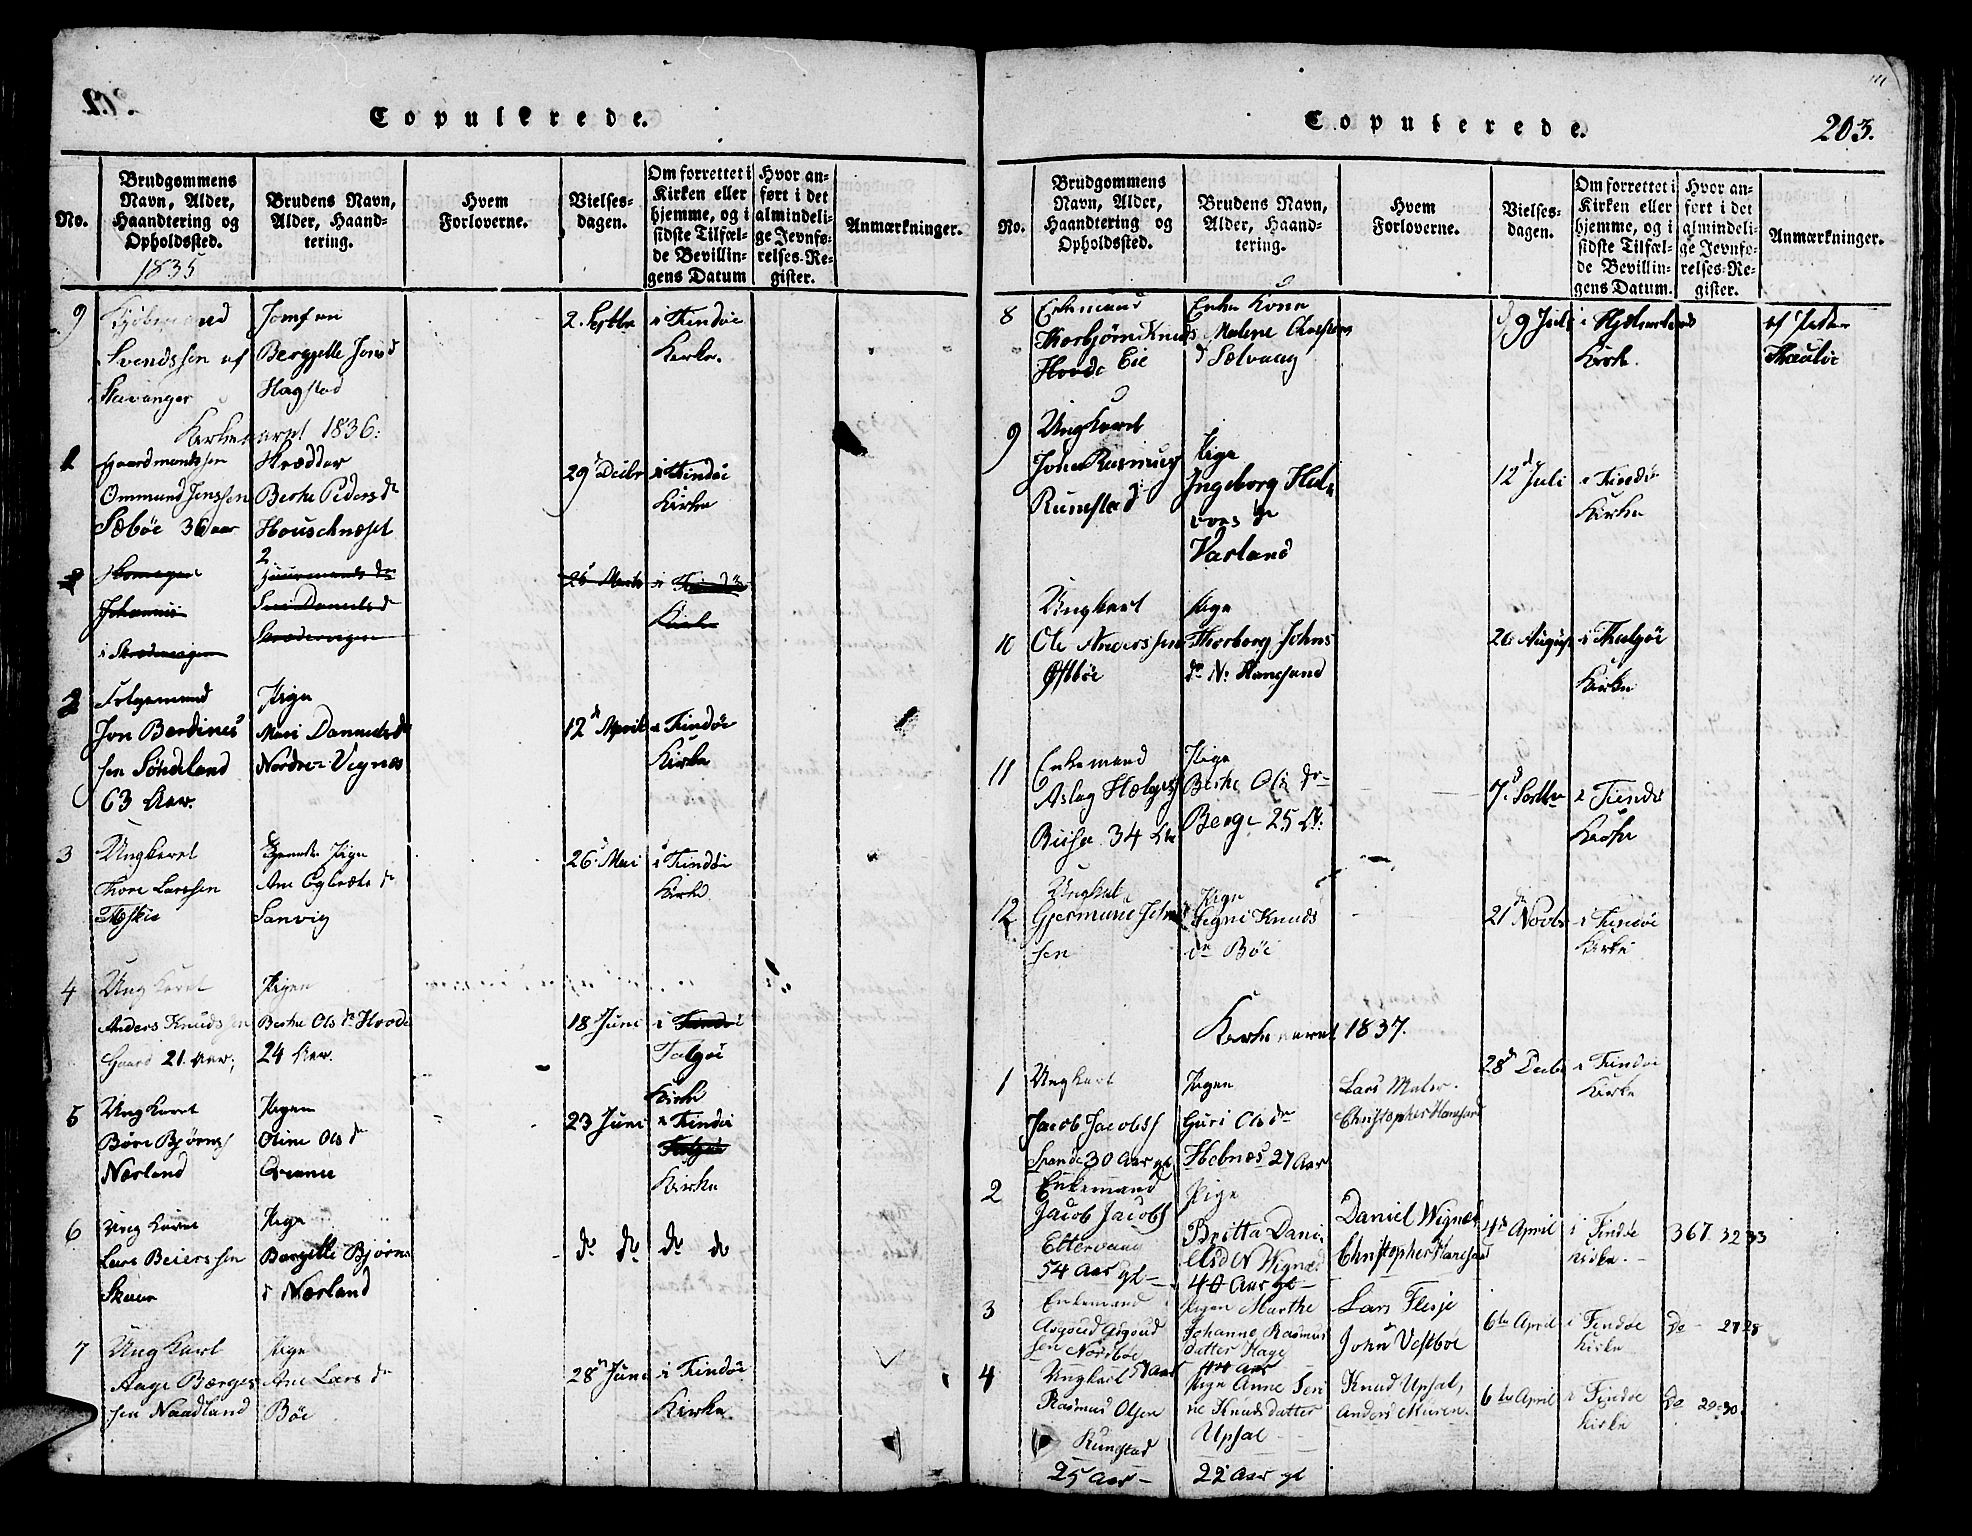 202.
Copulerede.
No.
Brudgommens
Navn, Alder,
Haandtering og
Opholdssted.
Brudens Navn,
Alder, Haand-
tering.
Hvem
Forloverne.
Vielses-
dagen.
Om forrettet i
Kirken eller
hjemme, og i
sidste Tilfæl-
de Bevillin-
gens Datum
Hvor an-
ført i det
almindeli-
ge Jevnfø-
relses-Re-
gister.
Anmærkninger.
1835
9
Svendssen af
Stavanger
Jomfru
Bergjette
Hagstad
2. Septbr
i Findöe
Kirke.
Kirkeaaret 1836:
1
Gaardmandssen
Ommund Jenssen
Sæbøe 36 aar
Bertha Peders dr
29 Decbr
i Findöe
Kirke
2
i Findöe
Kirke
2
Jon Berdines
sen Sőndeland
63 Aar.
Pige
Mari Danielsdr
Nordre Vignæs
12 April
i Findöe
Kirke
3
Ungkarl
Tore Larssen
Pige
Ane
Sanvig
26 Mai
i Findöe
Kirke
4
Ungkarl
Anders Knudssen
Gaard 21 Aar,
Pigen
Berthe Ols dr Hovde
24 Aar.
18 Juni
i Findöe
Talgöe
Kirke
5
Ungkarl
Böre Bjørns
Nærland
Pigen
Oline Ols dr
23 Juni
i Findöe
Talgöe
Kirke
6
Ungkarl
Lars Beierssen
Pige
Bergitte Bjørns
d Nærland
do do
do do
7
Ungkarl
Aage Børges
sen Naadland
Pige
Ane Lars dr
Bőe
28 Juni
i Findöe
Kirke.
203.
Copulerede.
No.
Brudgommens
Navn, Alder,
Haandtering og
Opholdssted.
Brudens Navn,
Alder, Haand-
tering.
Hvem
Forloverne.
Vielses-
dagen.
Om forrettet i
Kirken eller
hjemme, og i
sidste Tilfæl-
de Bevillin-
gens Datum.
Hvor an-
ført i det
almindeli-
ge Jevnfø-
relses-Re-
gister.
Anmærkninger.
8
Enkemand
Thorbjörn Knuds
Hovde Eie
Enke Kone
Malene
d Sælvaag
9 Juli
i
Kirke.
af Pastor
9
Ungkarl
John Rasmus
Rumstad
Pige
Ingeborg Hal
vors dr
Varland
12 Juli
i Findöe
Kirke
10
Ungkarl
Ole Anderssen
Østbőe
Pige
Thorborg Johns
dr N. Hanesand
26 August
i Thalgöe
Kirke
11
Enkemand
Aslag Hælges
34 Aar
Pige
Berthe Ols dr
Berge 25 Ar:
7 Septbr
i Findöe
Kirke
12
Ungkarl
sen
Pige
Signe Knuds
dr Böe
21 Novbr
i Findöe
Kirke
Kirkeaaret 1837.
1
Ungkarl
Jacob Jacobs
30 Aar gl
Pigen
Guri Ols dr
Hebnes 27 Aar
Lars Meler.
Christopher Hanesand
28 Decbr
i Findöe
Kirke
2
Enkemand
Jacob Jacobs
Ettervaag
54 Aar gl
Pige
Britta Dani
elsd N Wignæs
40 Aar gl
Daniel Wignæs
Christopher Hanesand
4de April
i Findöe
Kirke.
367. 32 33
3
Enkemand
Asgoud Asgoud
sen Nordböe
51 Aar
Pigen Marthe
Johanne Rasmus
datter Hage
44 Aar
Lars Flesje
John Vestboe
6te April
i Findöe
Kirke
Do 27 28
4
Ungkarl
Rasmus Olsen
Rumstad
25 Aar
Pige Anne Seri
ne Knudsdatter
Upsal
22 Aar gl
Knud Upsal,
Anders Muren.
6te April
i Findöe
Kirke
Do 29-30.